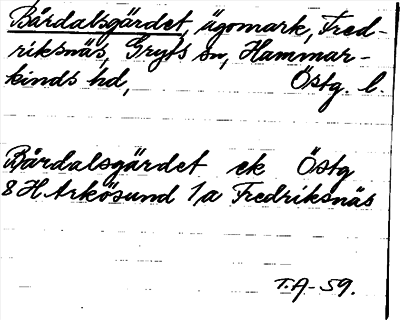 Bårdalsgärdet, ägomark, Fred-
riksnäs, Gryts sn, Hammar-
kinds hd, Östg. l.
Bårdalsgärdet ek Östg
8 H Arkösund 1a Fredriksnäs
T.A-59.